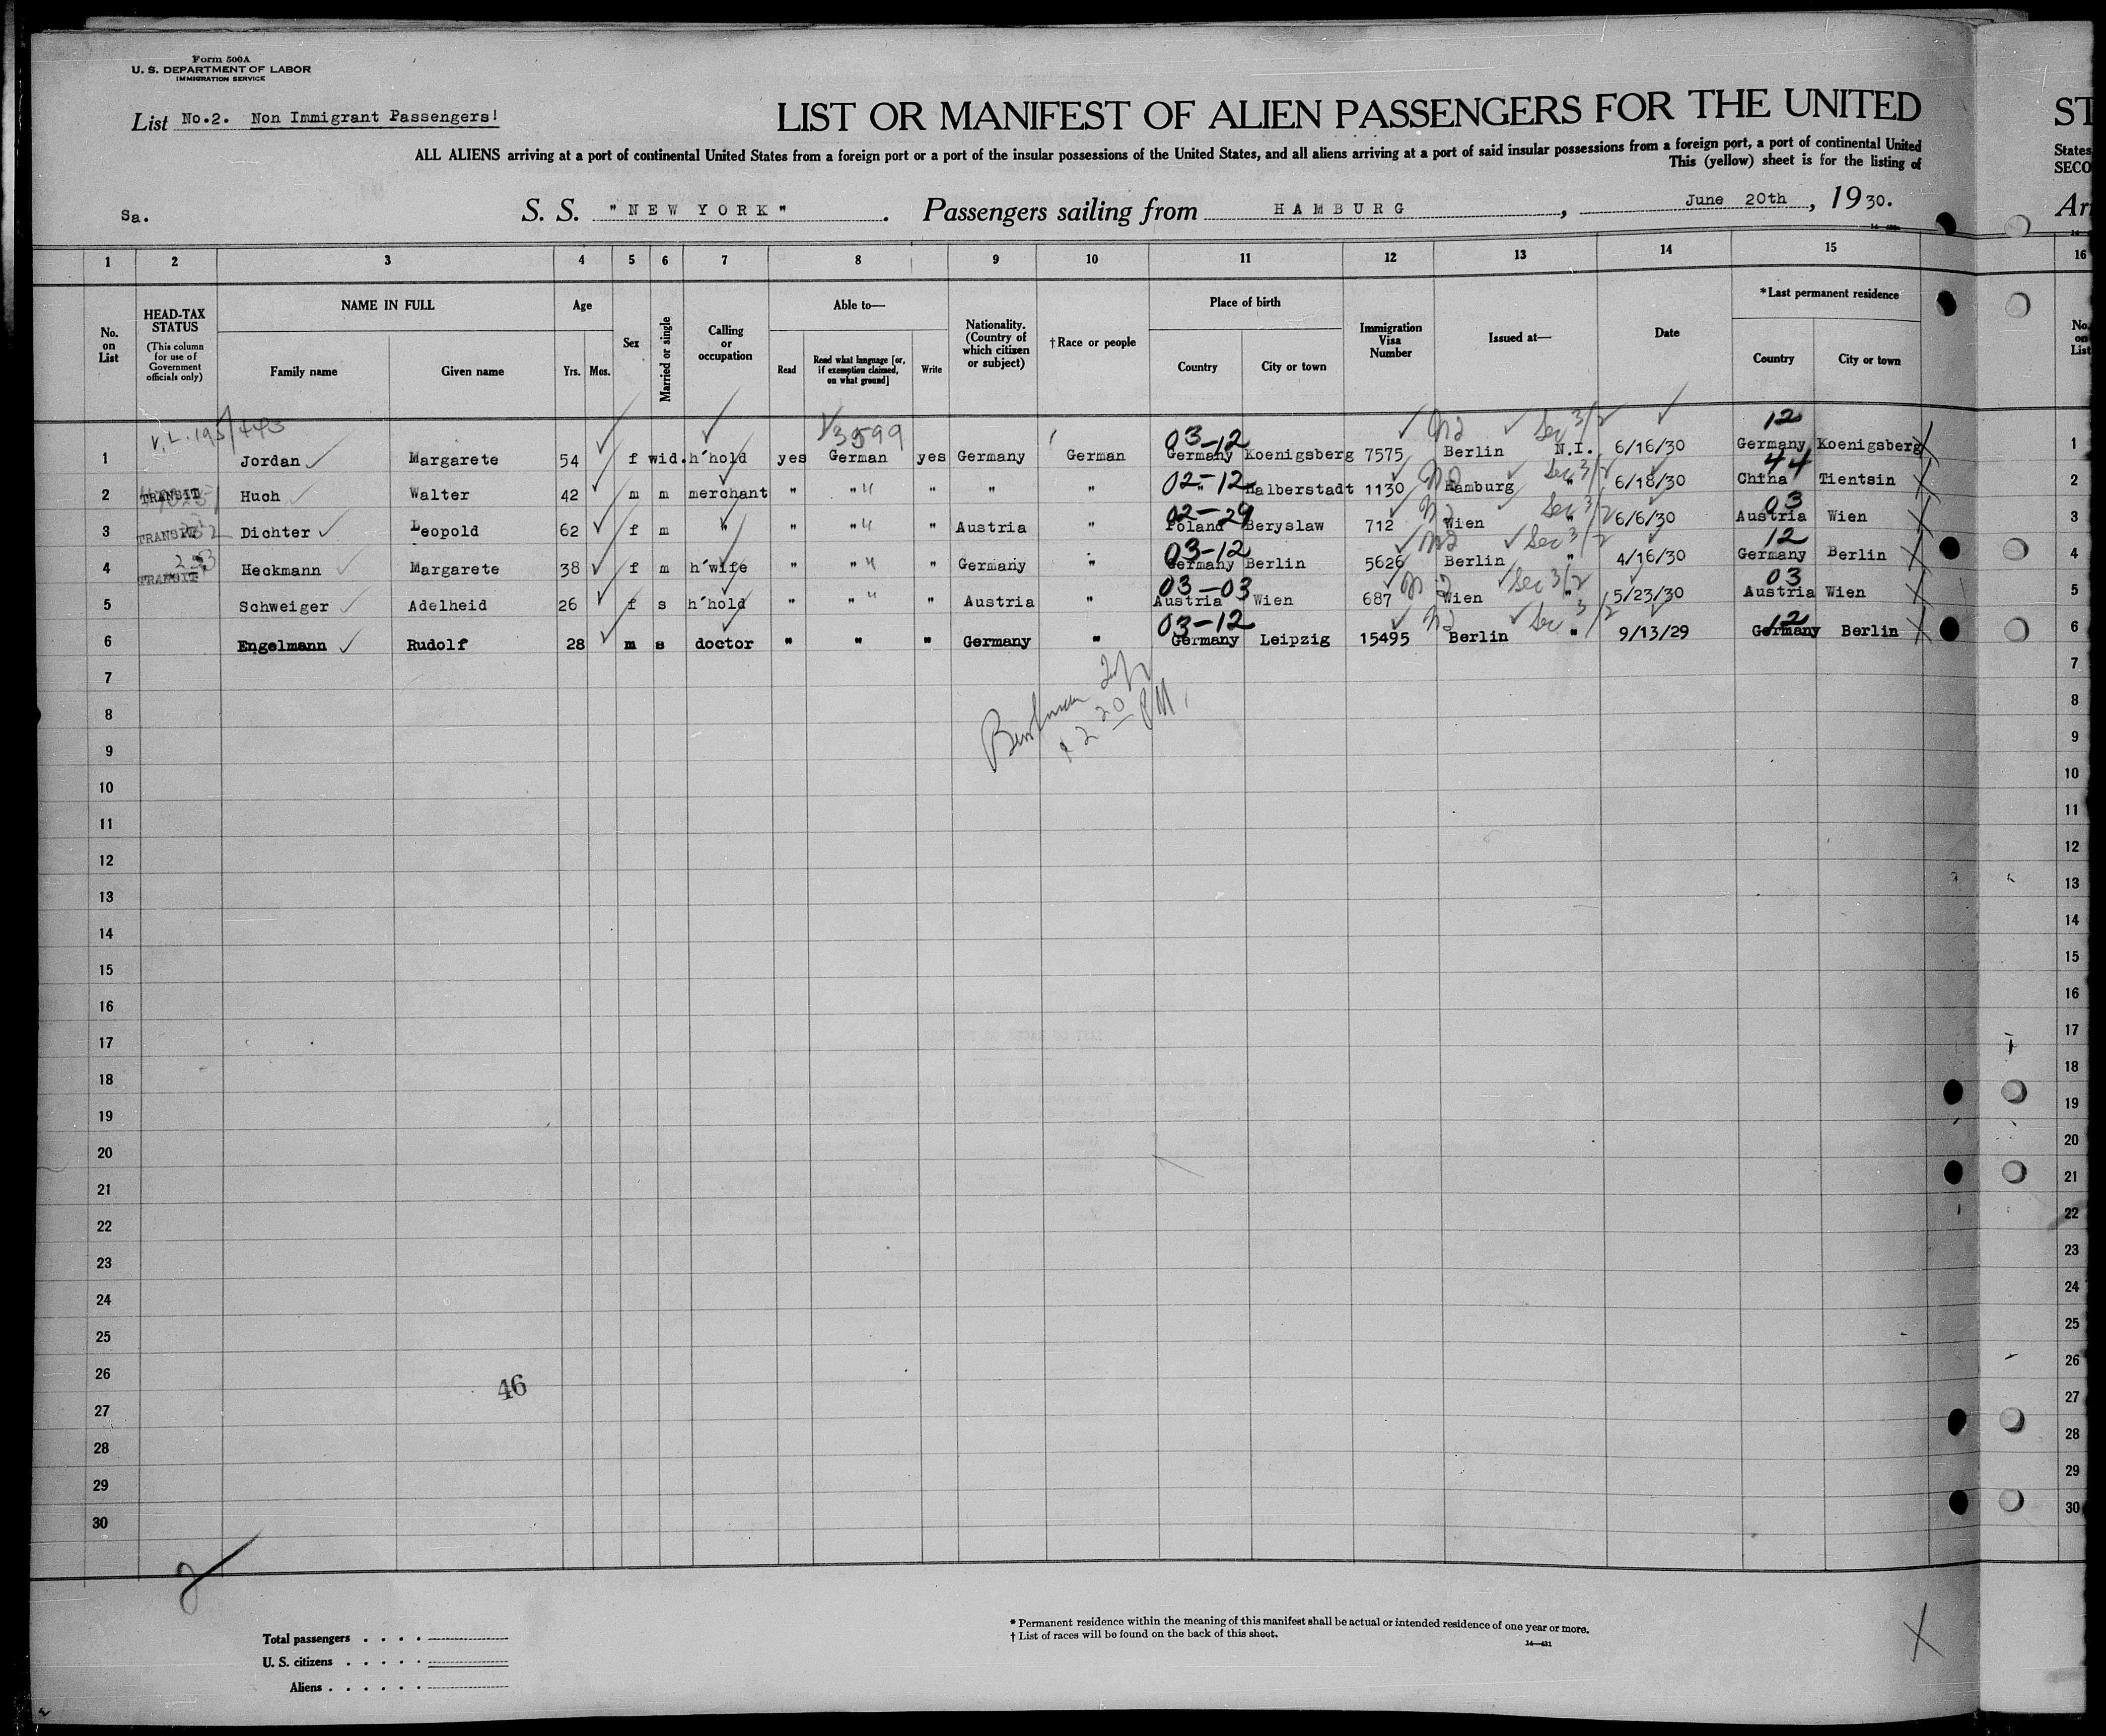 Form 500A
U. S. DEPARTMENT OF LABOR
IMMIGRATION SERVICE
List No.2. Non Immigrant Passengers!
LIST OR MANIFEST OF ALIEN PASSENGERS FOR THE UNITED
ST
ALL ALIENS arriving at a port of continental United States from a foreign port or a port of the insular possessions of the United States, and all aliens arriving at a port of said insular possessions from a foreign port, a port of continental United
States
This (yellow) sheet is for the listing of
SECO
Sa.
S. S. "NEW YORK". Passengers sailing from HAMBURG, June 20th, 1930.
Arr
1 2 3 4 5 6 7 8 9 10 11 12 13 14 15 16
No. on List
HEAD-TAX STATUS
(This column for use of Government officials only)
NAME IN FULL
Family name
Given name
Age
Yrs. Mos.
Sex
Married or single
Calling or occupation
Able to—
Read
Read what language [or, if exemption claimed, on what ground]
Write
Nationality. (Country of which citizen or subject)
†Race or people
Place of birth
Country
City or town
Immigration Visa Number
Issued at—
Date
*Last permanent residence
Country
City or town
No. on List
3599 03-12 Sec 3/2 12
1 Jordan Margarete 54 f wid. h'hold yes German yes Germany German Germany Koenigsberg 7575 Berlin N.I. 6/16/30 Germany Koenigsberg 1
02-12 Sec 3/2 44
2 TRANSIT Huch Walter 42 m m merchant " " " " " " Halberstadt 1130 Hamburg " 6/18/30 China Tientsin 2
02-29 Sec 3/2 03
3 TRANSIT Dichter Leopold 62 f m " " " " Austria " Poland Beryslaw 712 Wien " 6/6/30 Austria Wien 3
03-12 Sec 3/2 12
4 TRANSIT Heckmann Margarete 38 f m h'wife " " " Germany " Germany Berlin 5626 Berlin " 4/16/30 Germany Berlin 4
03-03 Sec 3/2 03
5 Schweiger Adelheid 26 f s h'hold " " " Austria " Austria Wien 687 Wien " 5/23/30 Austria Wien 5
03-12 Sec 3/2 12
6 Engelmann Rudolf 28 m s doctor " " " Germany " Germany Leipzig 15495 Berlin " 9/13/29 Germany Berlin 6
7 7
8 2 20 PM 8
9 9
10 10
11 11
12 12
13 13
14 14
15 15
16 16
17 17
18 18
19 19
20 20
21 21
22 22
23 23
24 24
25 25
26 46 26
27 27
28 28
29 29
30 30
Total passengers
U. S. citizens
Aliens
* Permanent residence within the meaning of this manifest shall be actual or intended residence of one year or more.
† List of races will be found on the back of this sheet.
14—431